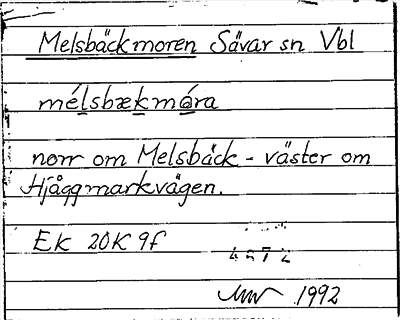 Melsbäckmoren Sävar sn Vbl
mélsbækmóra
norr om Melsbäck - väster om
Hjåggmarkvägen.
Ek 20K 9f
1992